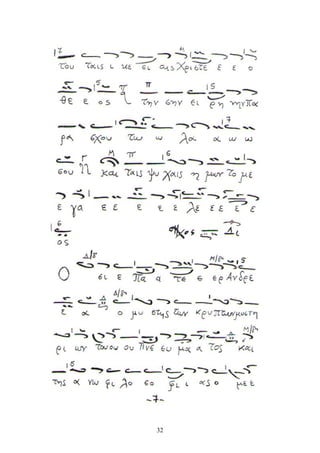 του ταις ι κε σι αις Χριστε ε ε ο
θε ε ος την σην ει ρη νην πα
ρα σχου τω ω λα α ω ω
σου και ταις ψυ χαις η μων το με
ε γα ε ε ε ε ε λε ε ε ε ε
ος Δι
Ο σι ε πα α τε ε ερ Ανδρε
ε α ο μυ στης των κρυπτων μυστη
ρι ων του ου ου πνε ευ μα α τος και
της α νω φι λο σο φι ι ας ο με ε
-7-
32